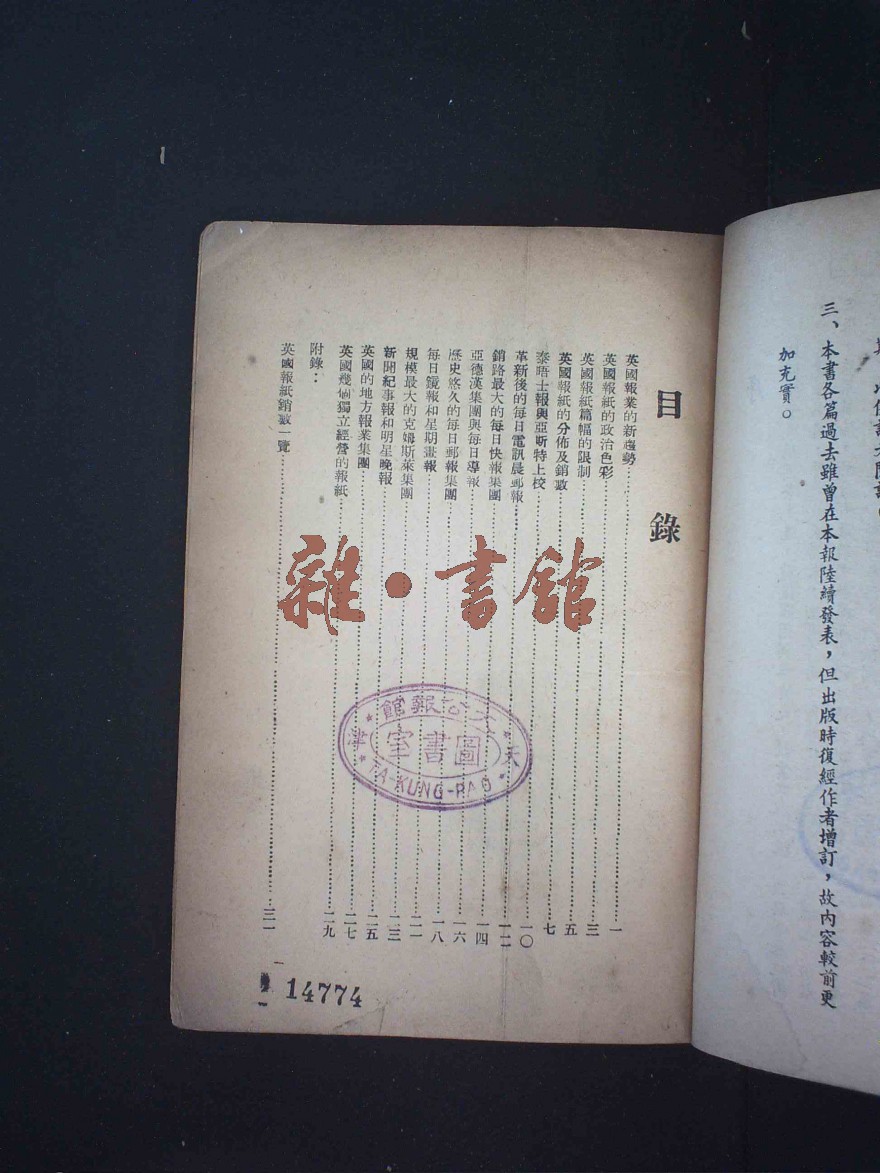 三、本書各篇過去雖曾在本報陸續發表，但出版時復經作者增訂，故內容較前更
加充實。
目錄
英國報業的新趨勢……一
英國報紙的政治色彩……三
英國報紙篇幅的限制……五
英國報紙的分佈及銷數……七
泰晤士報與亞斯特上校……一〇
革新後的每日電訊晨郵報……一二
銷路最大的每日快報集團……一四
亞德漢集團與每日導報……一六
歷史悠久的每日郵報集團……一八
每日鏡報和星期畫報……二一
規模最大的克姆斯萊集團……二三
新聞紀事報和明星晚報……二五
英國的地方報業集團……二七
英國幾個獨立經營的報紙……二九
附錄：
英國報紙銷數一覽……三一
雜·書館
天津大公報館
圖書室
TA-KUNG-PAO
14774